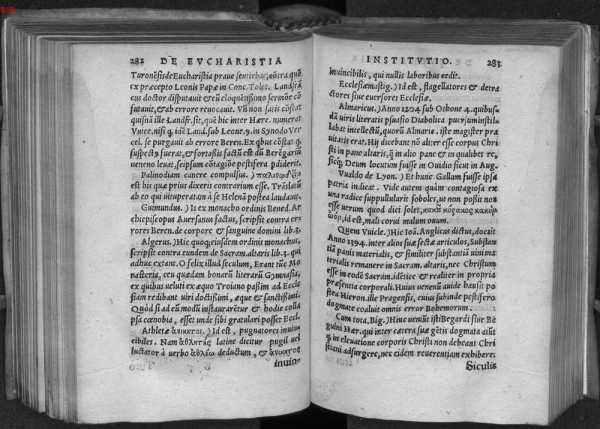 282 DE EVCHARISTIA
Turonēsis de Eucharistia praue sentiebat,
ex præcepto Leonis Papæ in Conc. Tolet. Landfrā
cus doctor disputauit & eū eloquētissimo sermōe cō
futauit, & ab errore reuocauit. Vñ non satis cōstat
quisnā ille Landfr. sit, quē hic inter Hære. numerat
Vuice. nisi ꝗ. idē Land. sub Leone. 9. in Synodo Ver
cel. se purgauit ab errore Beren. Ex qbus cōstat q.
suspectꝰ fuerat, & fortassis factū est dū Berēgariū
veneno leuat, seipsum cōtagiōe pestifera pdiderit.
Palinodiam canere compulsus.)
est hic quæ prius dixeris contrarium esse. Trāslatū
ab eo qui vituperatam a se Helenam postea laudauit.
Guimundus. ) Is ex monacho ordinis Bened. Ar
chiepiscopus Auersanus factus, scripsit contra er-
rores Beren. de corpore & sanguine domini lib.3.
Algerus. )Hic quoq; eiusdem ordinis monachus,
scripsit contra eundem de Sacram. altaris lib.3. qui
adhuc extant. O felix illud seculum, Erant tūc Mo
nasteria, ceu quædam bonarū literarū Gymnasia,
ex quibus veluti ex equo Troiano passim ad Eccle
siam redibant viri doctissimi, æque & sanctissimi.
Quòd si ad eū modū instauraretur & hodie colla
psa cœnobia, esset unde sibi gratulari posset Eccl.
Athletæ ἀνίκητοι. ) Id est, pugnatores inuin
cibiles. Nam ἀθλητὴς latine dicitur pugil vel
luctator à verbo ἀθλέω deductum, & ἀνίκητος
inuin-
INSTITVTIO. 283
inuincibilis, qui nullis laboribus cedit.
Ecclesiæmastig. )Id est, flagellatores & detra
ctores siue euersores Ecclesiæ.
Almaricus.) Anno 1204 sub Othone 4. quibus-
dā viris literatis psuasio Diabolica
labat intellectū, quorū Almaric. iste magister præ
uitatis erat. Hij dicebant nō aliter esse corpus Chri
sti in pane altaris, ꝗ in alio pane & in qualibet re,
sicq; Deum locutum fuisse in Ouidio sicut in Aug.
Vualdo de Lyon. ) Et hunc Gallum fuisse ipsa
patria indicat. Vide autem quàm contagiosa ex
una radice suppullularit soboles, ut non possis non
esse verum quod dici solet, κακὸν κακὸς κακοῦ
id est, mali corui malum ouum.
Quem Vuicle. )Hic Ioā. Anglicus dictus, docuit
Anno 1394. inter alios suæ sectæ articulos, Substan
tiā panis materialis, & similiter substantiā vini ma
terialis remanere in Sacram. altaris, nec Christum
esse in eodē Sacram. idētice & realiter in propria
præsentia corporali. Huius venenū auide hausit po
stea Hieron. ille Pragensis, cuius subinde pestifero
dogmate coaluit omnis error Bohemorum.
Cum tota. Big. )Hinc uenūt isti Begardi siue Be
guini Hær. qui inter cætera suæ gētis dogmata aiūt
ꝗ in eleuatione corporis Christi non debeant Chri
stiani adsurgere, nec eidem reuerentiam exhibere:
Siculis